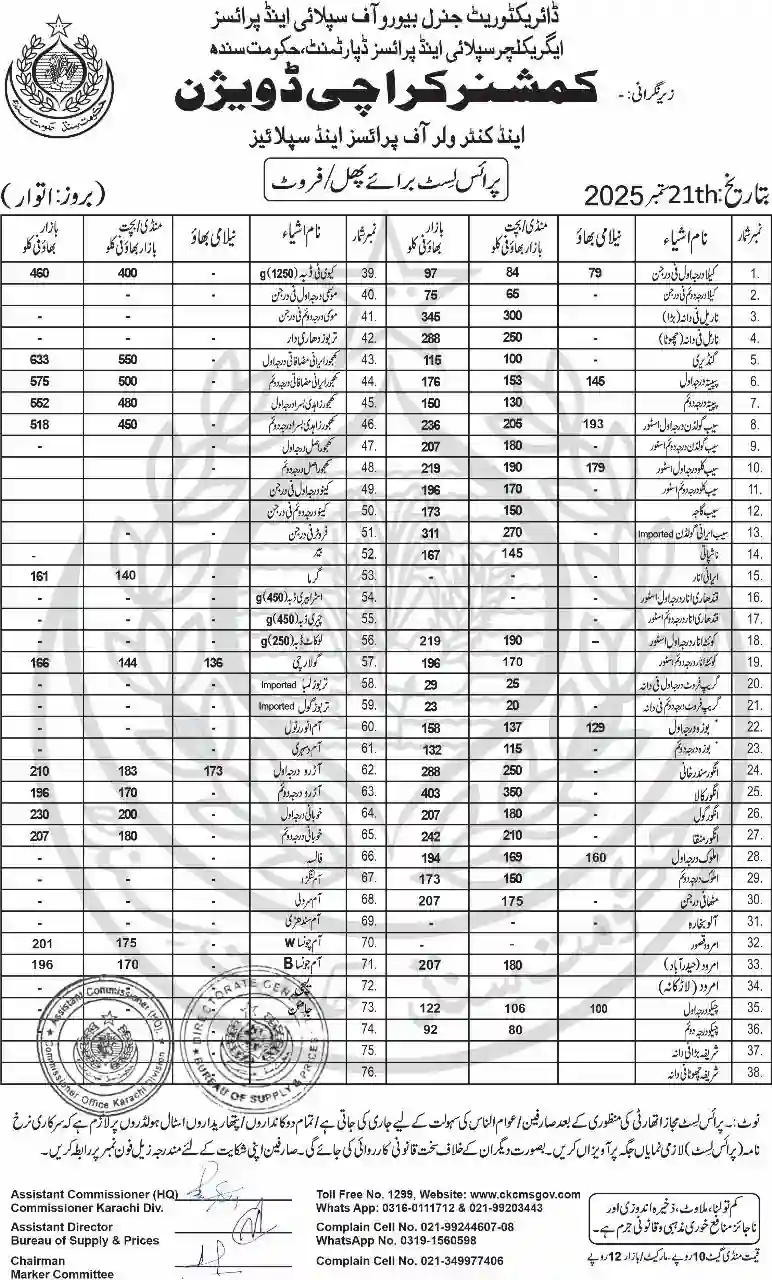 ڈائریکٹوریٹ جنرل بیورو آف سپلائی اینڈ پرائسز
ایگریکلچر سپلائی اینڈ پرائسز ڈپارٹمنٹ، حکومت سندھ
زیر نگرانی: - کمشنر کراچی ڈویژن
اینڈ کنٹرولر آف پرائسز اینڈ سپلائیز
پرائس لسٹ برائے پھل/فروٹ
بتاریخ: 21th ستمبر 2025 (بروز: اتوار)
نمبر شمار نام اشیاء نیلامی بھاؤ منڈی/بچت بازار بھاؤ فی کلو بازار بھاؤ فی کلو
1. کیلا درجہ اول فی درجن 79 84 97
2. کیلا درجہ دوئم فی درجن - 65 75
3. ناریل فی دانہ (بڑا) - 300 345
4. ناریل فی دانہ (چھوٹا) - 250 288
5. گنڈیری - 100 115
6. پپیتہ درجہ اول 145 153 176
7. پپیتہ درجہ دوئم - 130 150
8. سیب گولڈن درجہ اول اسٹور 193 205 236
9. سیب گولڈن درجہ دوئم اسٹور - 180 207
10. سیب کلو درجہ اول اسٹور 179 190 219
11. سیب کلو درجہ دوئم اسٹور - 170 196
12. سیب گاجہ 150 173
13. سیب ایرانی گولڈن Imported - 270 311
14. ناشپاتی 145 167
15. ایرانی انار - - -
16. قندھاری انار درجہ اول اسٹور -
17. قندھاری انار درجہ دوئم اسٹور -
18. کوئٹہ انار درجہ اول اسٹور – 190 219
19. کوئٹہ انار درجہ دوئم اسٹور - 170 196
20. گریپ فروٹ درجہ اول فی دانہ - 25 29
21. گریپ فروٹ درجہ دوئم فی دانہ - 20 23
22. درجہ اول 129 137 158
23. درجہ دوئم - 115 132
24. انگور سندرخانی - 250 288
25. انگور کالا - 350 403
26. انگور گول - 180 207
27. انگور منقا - 210 242
28. املوک درجہ اول 160 169 194
29. املوک درجہ دوئم - 150 173
30. مٹھا فی درجن - 175 207
31. آلو بخارہ -
32. امرود قصور - - -
33. امرود (حیدرآباد) - 180 207
34. امرود (لاڑکانہ) -
35. چیکو درجہ اول 100 106 122
36. چیکو درجہ دوئم - 80 92
37. شریفہ بڑا فی دانہ -
38. شریفہ چھوٹا فی دانہ -
نمبر شمار نام اشیاء نیلامی بھاؤ منڈی/بچت بازار بھاؤ فی کلو بازار بھاؤ فی کلو
39. کیوی فی ڈبہ (1250)g - 400 460
40. موسمی درجہ اول فی درجن - - -
41. موسمی درجہ دوئم فی درجن - - -
42. تربوز دھاری دار - - -
43. کھجور ایرانی مضافاتی درجہ اول - 550 633
44. کھجور ایرانی مضافاتی درجہ دوئم - 500 575
45. کھجور زاہدی بسرا درجہ اول - 480 552
46. کھجور زاہدی بسرا درجہ دوئم - 450 518
47. کھجور اصل درجہ اول -
48. کھجور اصل درجہ دوئم -
49. کینو درجہ اول فی درجن -
50. کینو درجہ دوئم فی درجن -
51. فروٹر فی درجن - -
52. بیر - -
53. گرما - 140 161
54. اسٹرابیری ڈبہ (450)g - - -
55. چیری ڈبہ (450)g - - -
56. لوکاٹ ڈبہ (250)g - - -
57. گولارچی 136 144 166
58. تربوز لمبا Imported - - -
59. تربوز گول Imported - - -
60. آم انور رٹول - - -
61. آم دسہری - - -
62. آڑو درجہ اول 173 183 210
63. آڑو درجہ دوئم - 170 196
64. خوبانی درجہ اول - 200 230
65. خوبانی درجہ دوئم - 180 207
66. فالسہ - - -
67. آم لنگڑا - - -
68. آم سرولی - - -
69. آم سندھڑی - - -
70. آم چونسا W - 175 201
71. آم چونسا B - 170 196
72.
73.
74.
75.
76.
Assistant Commissioner (HQ).
Commissioner Office Karachi Division
DIRECTORATE GENERAL
BUREAU OF SUPPLY & PRICES
نوٹ:۔ پرائس لسٹ مجاز اتھارٹی کی منظوری کے بعد صارفین/عوام الناس کی سہولت کے لیے جاری کی جاتی ہے/تمام دوکانداروں/پتھاریداروں اسٹال ہولڈروں پر لازم ہے کہ سرکاری نرخ
نامہ (پرائس لسٹ) لازمی نمایاں جگہ پر آویزاں کریں۔ بصورت دیگر ان کے خلاف سخت قانونی کارروائی کی جائے گی۔ صارفین اپنی شکایت کے لئے مندرجہ زیل فون نمبر پر رابطہ کریں۔
Assistant Commissioner (HQ)
Commissioner Karachi Div.
Assistant Director
Bureau of Supply & Prices
Chairman
Marker Committee
Toll Free No. 1299, Website: www.ckcmsgov.com
Whats App: 0316-0111712 & 021-99203443
Complain Cell No. 021-99244607-08
WhatsApp No. 0319-1560598
Complain Cell No. 021-349977406
کم تولنا، ملاوٹ، ذخیرہ اندوزی اور
ناجائز منافع خوری مذہبی و قانونی جرم ہے۔
قیمت منڈی گیٹ 10 روپے۔ مارکیٹ/بازار 12 روپے